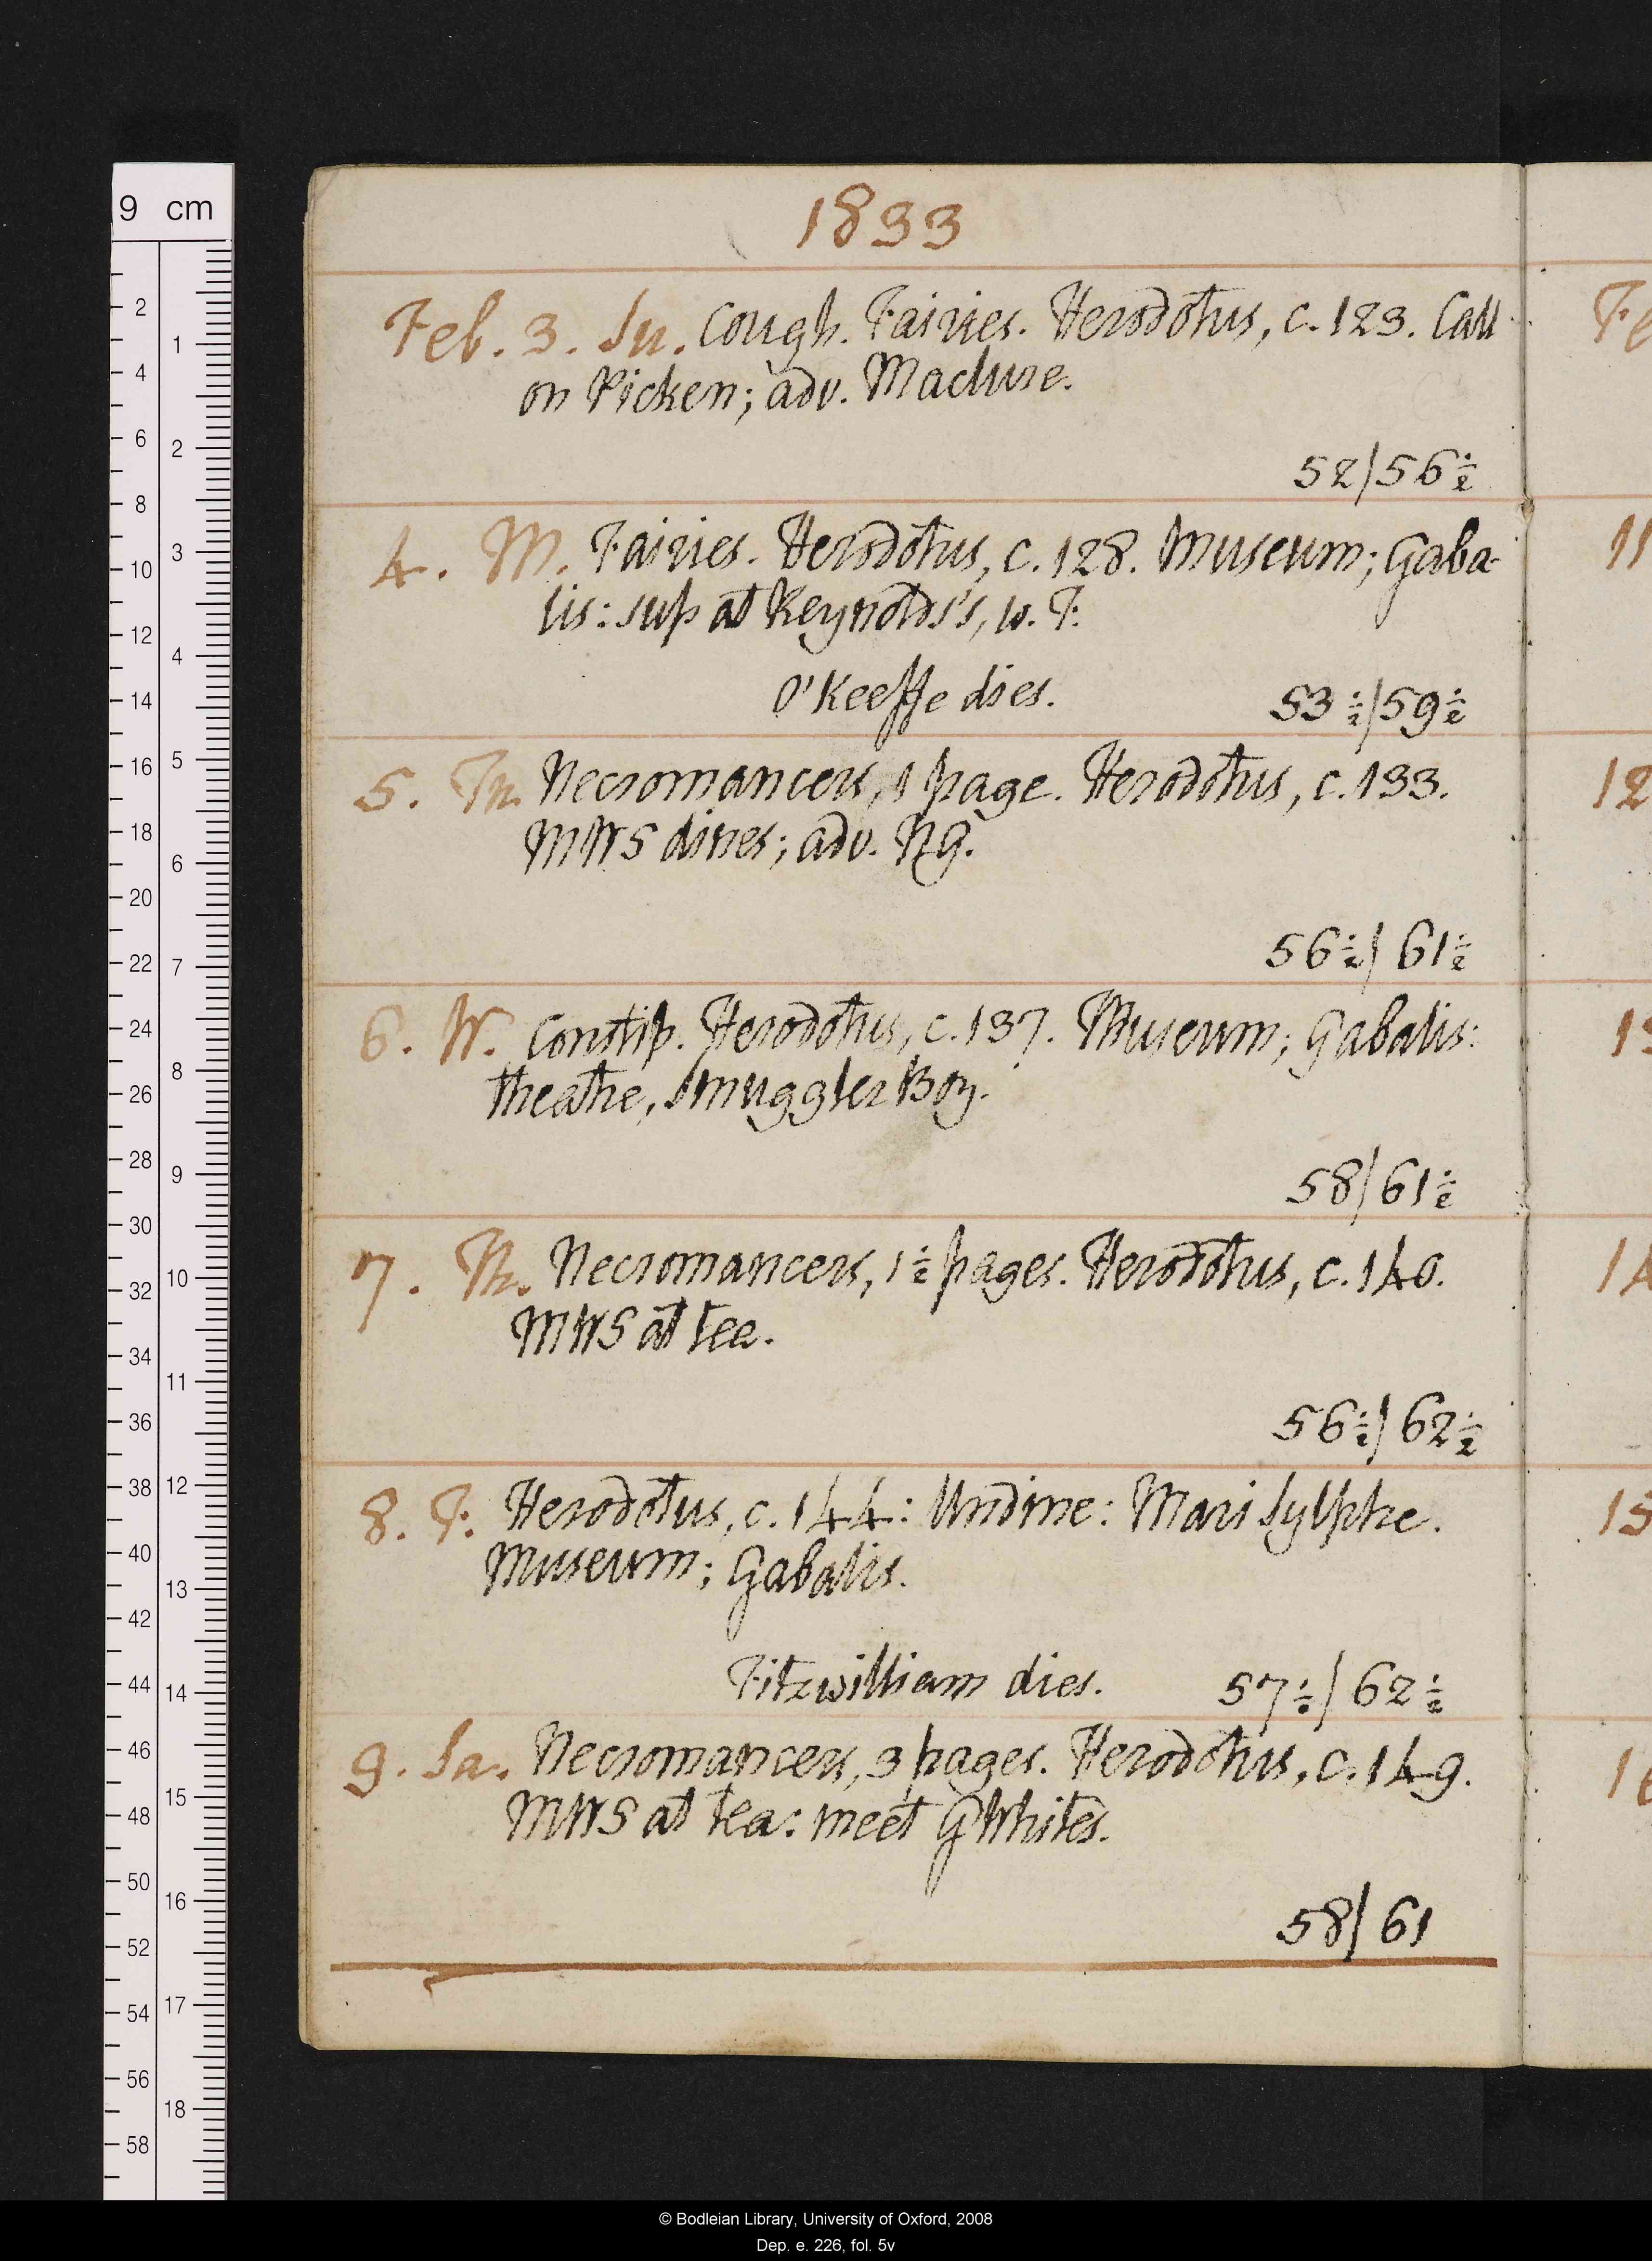 1833
Feb. 3. Su. Cough. Fairies. Herodotus, c. 123. Call
on Picken; adv. Macluse.
52/56½
4. M. Fairies. Herodotus, c. 128. Museum; Gaba-
lis: sup at Reynolds's, w. T.
O'Keeffe dies.
53½/59½
5. Tu. Necromancers, 1 page. Herodotus, c. 133.
MWS dines; adv. NG.
56½/61½
6. W. Constip. Herodotus, c. 137. Museum; Gabalis:
theatre, Smuggler Boy.
58/61½
7. Th. Necromancers, 1½ pages. Herodotus, c. 140.
MWS at tea.
56½/62½
8. F. Herodotus, c. 144: Undine: Mari Sylphe.
Museum; Gabalis.
Fitzwilliam dies.
57½/62½
9. Sa. Necromancers, 3 pages. Herodotus, c. 149.
MWS at tea: meet GWhites.
58/61
Fe
11
12
13
14
15
16
9 cm
2
4
6
8
10
12
14
16
18
20
22
24
26
28
30
32
34
36
38
40
42
44
46
48
50
52
54
56
58
1
2
3
4
5
6
7
8
9
10
11
12
13
14
15
16
17
18
© Bodleian Library, University of Oxford, 2008
Dep. e. 226, fol. 5v